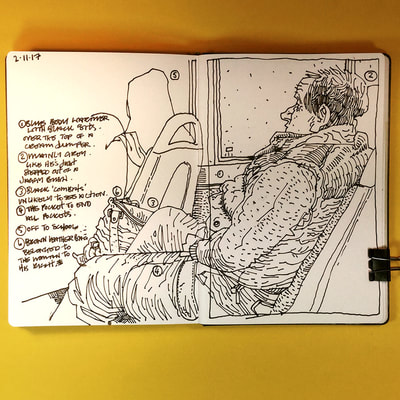 2·11·17
① BLUE BODY WARMER
WITH BLACK BITS.
OVER THE TOP OF A
CREAM JUMPER.
② MAINLY GREY.
LIKE HE'S JUST
STEPPED OUT OF A
③ BLACK 'COMBATS'
UNLIKELY TO SEE ACTION.
④ THE POCKET TO END
ALL POCKETS.
⑤ OFF TO SCHOOL...
⑥ BROWN LEATHER BAG
BELONGED TO
THE WOMAN TO
HIS RIGHT.
⑤
②
⑥
③
①
④